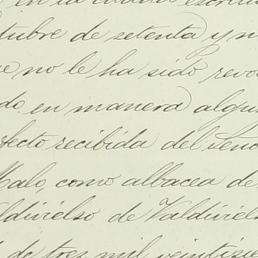 en la
tubre de setenta y n
e no le ha sido revo
do en manera algun
fecto recibida del Señ
Malo, como albacea de
aldivielso de Valdiviels
de tres mil veintisie